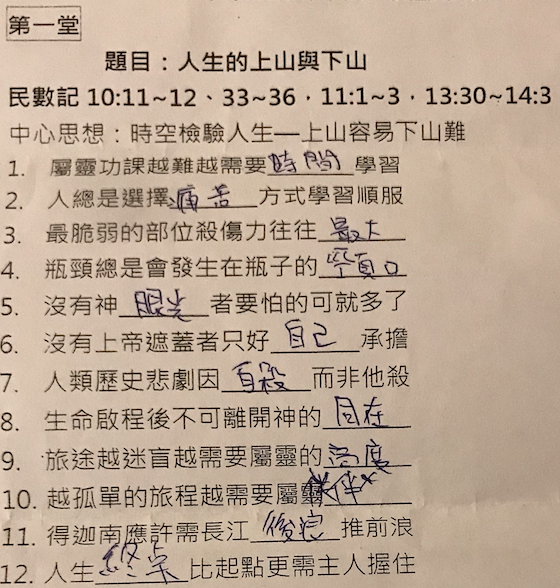 第一堂
題目：人生的上山與下山
民數記 10:11~12、33~36，11:1~3，13:30~14:3
中心思想：時空檢驗人生—上山容易下山難
1. 屬靈功課越難越需要時間學習
2. 人總是選擇痛苦方式學習順服
3. 最脆弱的部位殺傷力往往最大
4. 瓶頸總是會發生在瓶子的頸口
5. 沒有神眼光者要怕的可就多了
6. 沒有上帝遮蓋者只好自己承擔
7. 人類歷史悲劇因自殺而非他殺
8. 生命啟程後不可離開神的同在
9. 旅途越迷盲越需要屬靈的高度
10. 越孤單的旅程越需要屬靈伴
11. 得迦南應許需長江後浪推前浪
12. 人生終點比起點更需主人握住